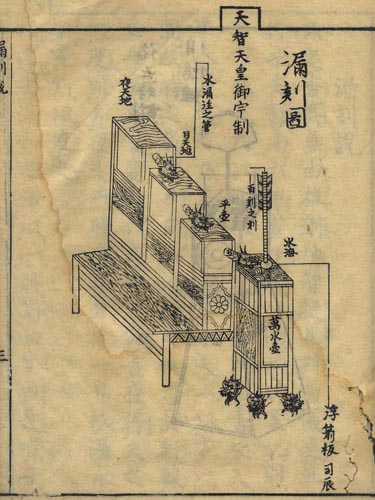 漏刻圖
天智天皇御宇制
水渴注之管
夜天池
日天池
平壺
百刻之刻
水海
萬水壺
浮箭板 司辰
漏刻說
三